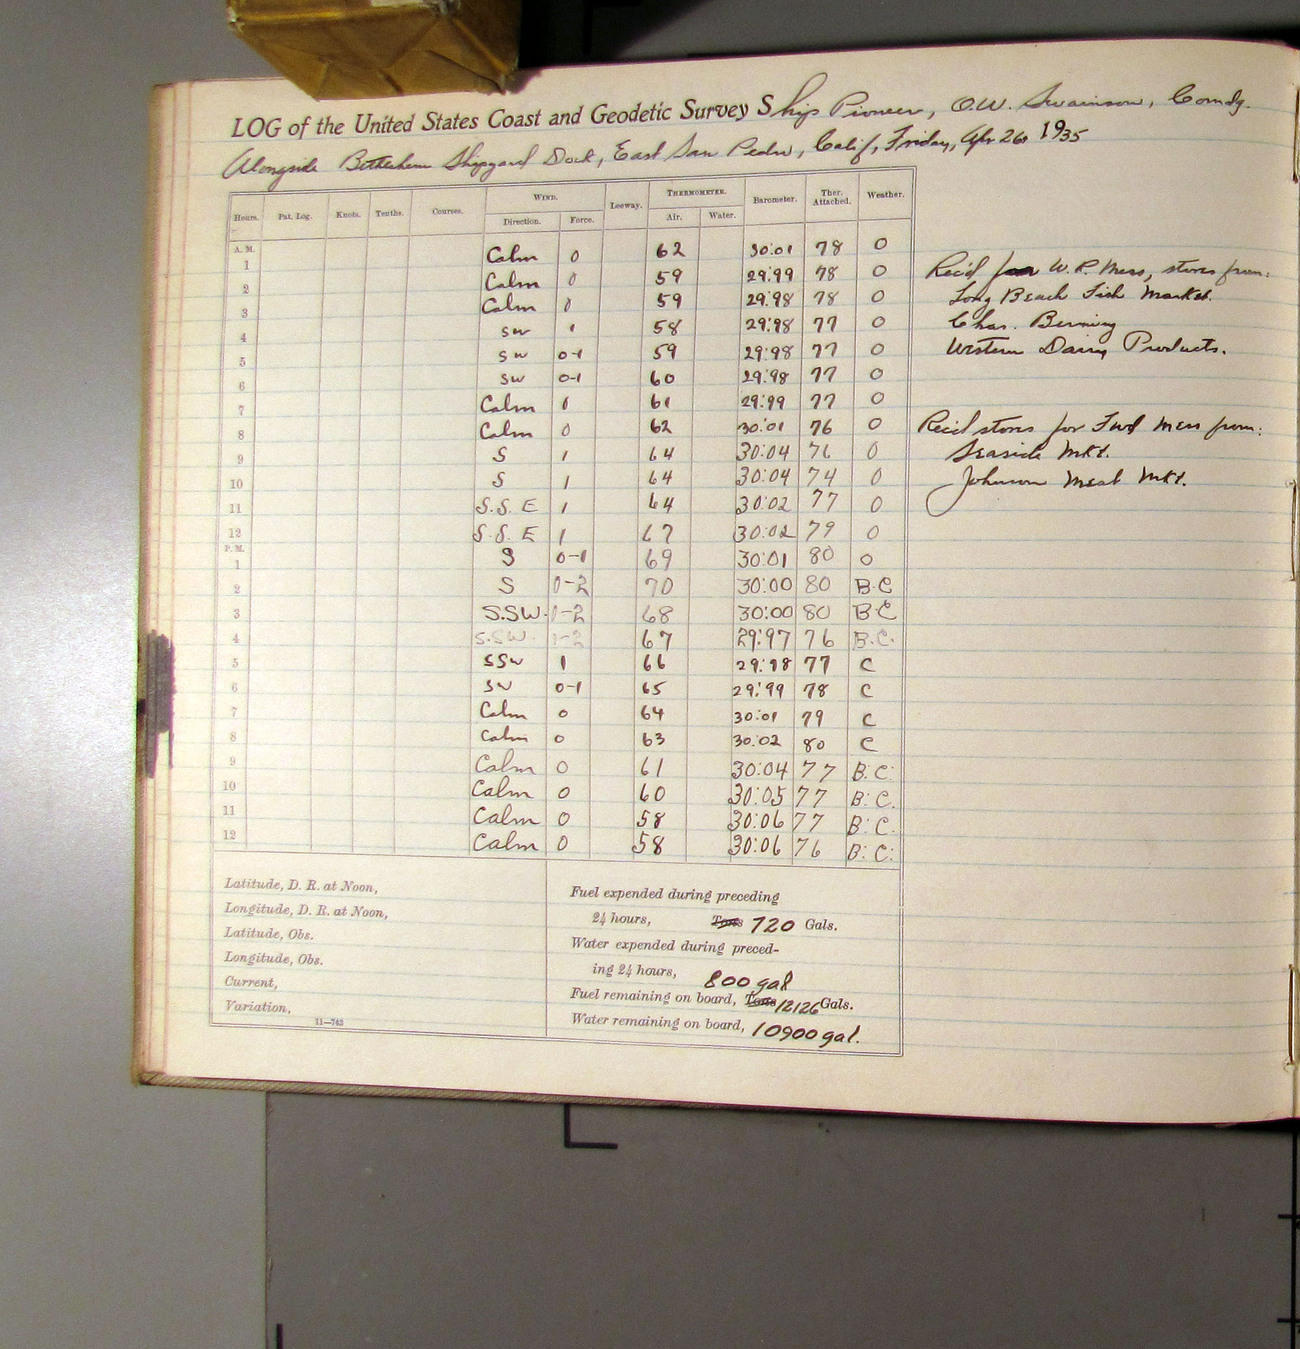 LOG of the United States Coast and Geodetic Survey Ship Pioneer, O.W. Swainson, Comdg.
Alongside Bethlehem Shipyard Dock, East San Pedro, Calif, Friday, Apr 26, 1935
Hours. Pat. Log. Knots. Tenths. Courses. WIND. Direction. Force. Leeway. THERMOMETER. Air. Water. Barometer. Ther. Attached. Weather.
A. M.
1 Calm 0 62 30:01 78 0
2 Calm 0 59 29:99 78 0
3 Calm 0 59 29:98 78 0
4 SW 1 58 29:98 77 0
5 SW 0-1 59 29:98 77 0
6 SW 0-1 60 29:98 77 0
7 Calm 0 61 29:99 77 0
8 Calm 0 62 30:01 76 0
9 S 1 64 30:04 76 0
10 S 1 64 30:04 74 0
11 S.S.E 1 64 30:02 77 0
12 S.S.E 1 67 30:02 79 0
P. M.
1 S 0-1 69 30:01 80 0
2 S 1-2 70 30:00 80 B.C
3 S.SW. 1-2 68 30:00 80 B.C
4 S.SW. 1-2 67 29:97 76 B.C.
5 SSW 1 66 29:98 77 C
6 SW 0-1 65 29:99 78 C
7 Calm 0 64 30:01 79 C
8 Calm 0 63 30:02 80 C
9 Calm 0 61 30:04 77 B.C.
10 Calm 0 60 30:05 77 B.C.
11 Calm 0 58 30:06 77 B.C.
12 Calm 0 58 30:06 76 B.C.
Rec'd for W.R. Mess, stores from:
Long Beach Fish Market.
Chas. Berning
Western Dairy Products.
Rec'd stores for Fwd Mess from:
Seaside Mkt.
Johnson Meat Mkt.
Latitude, D. R. at Noon,
Longitude, D. R. at Noon,
Latitude, Obs.
Longitude, Obs.
Current,
Variation,
11—763
Fuel expended during preceding
24 hours, Tons 720 Gals.
Water expended during preced-
ing 24 hours, 800 gal
Fuel remaining on board, Tons 12126 Gals.
Water remaining on board, 10900 gal.